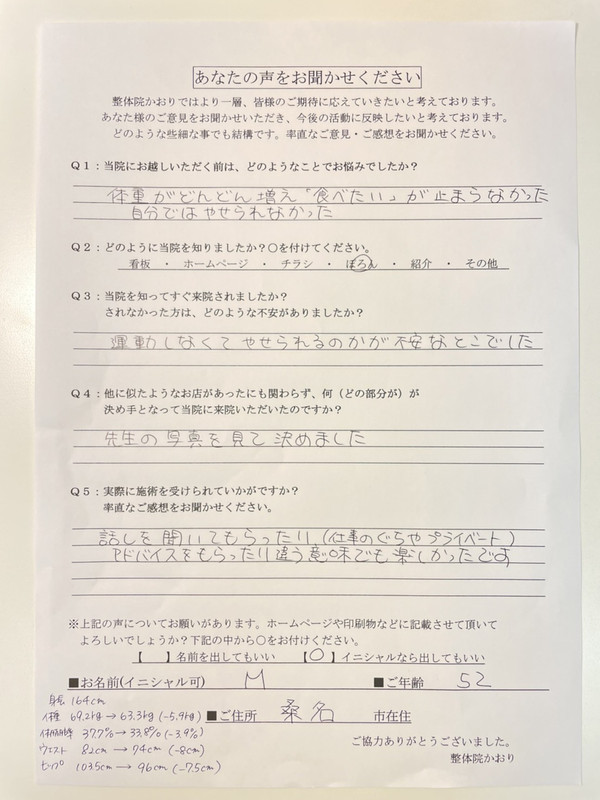 あなたの声をお聞かせください
整体院かおりではより一層、皆様のご期待に応えていきたいと考えております。
あなた様のご意見をお聞かせいただき、今後の活動に反映したいと考えております。
どのような些細な事でも結構です。率直なご意見・ご感想をお聞かせください。
Q1:当院にお越しいただく前は、どのようなことでお悩みでしたか?
体重がどんどん増え「食べたい」が止まらなかった
自分ではやせられなかった
Q2:どのように当院を知りましたか?〇を付けてください。
看板 ・ ホームページ ・ チラシ ・ ぽろん ・ 紹介 ・ その他
Q3:当院を知ってすぐ来院されましたか?
されなかった方は、どのような不安がありましたか?
運動しなくてやせられるのかが不安なとこでした
Q4:他に似たようなお店があったにも関わらず、何(どの部分が)が
決め手となって当院に来院いただいたのですか?
先生の写真を見て決めました
Q5:実際に施術を受けられていかがですか?
率直なご感想をお聞かせください。
話しを聞いてもらったり、(仕事のぐちやプライベート)
アドバイスをもらったり違う意味でも楽しかったです
※上記の声についてお願いがあります。ホームページや印刷物などに記載させて頂いて
よろしいでしょうか?下記の中から〇をお付けください。
【 】名前を出してもいい 【〇】イニシャルなら出してもいい
■お名前(イニシャル可) M ■ご年齢 52
■ご住所 桑名 市在住
身長 164cm
体重 69.2kg→63.3kg (-5.9kg)
体脂肪率 37.7%→33.8% (-3.9%)
ウエスト 82cm→74cm (-8cm)
ヒップ 103.5cm→96cm (-7.5cm)
ご協力ありがとうございました。
整体院かおり